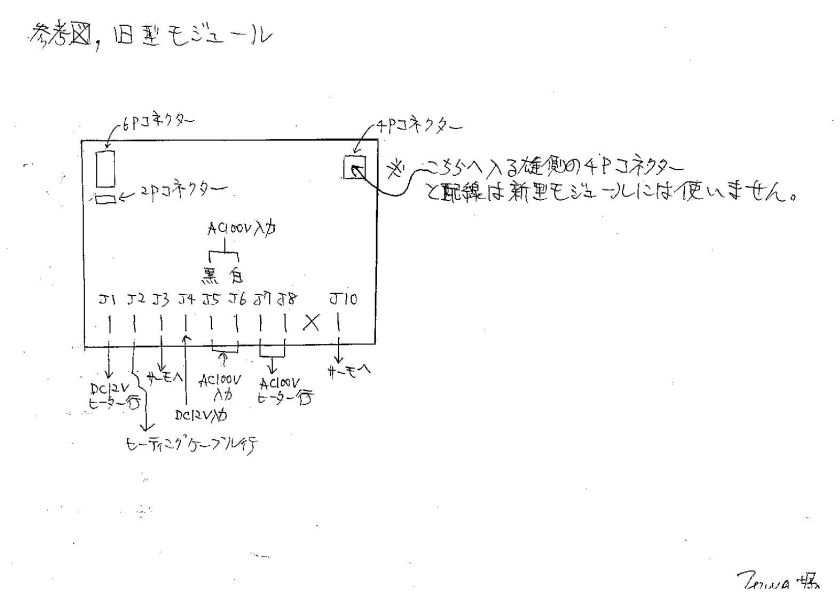 参考図, 旧型モジュール
6Pコネクター
4Pコネクター
※ こちらへ入る雄側の4Pコネクター
と配線は新型モジュールには使いません。
2Pコネクター
AC100V入力
黒 白
J1 J2 J3 J4 J5 J6 J7 J8 J10
X
DC12V
ヒーター行
サーモへ
AC100V
入力
AC100V
ヒーター行
サーモへ
DC12V入力
ヒーティングケーブル行